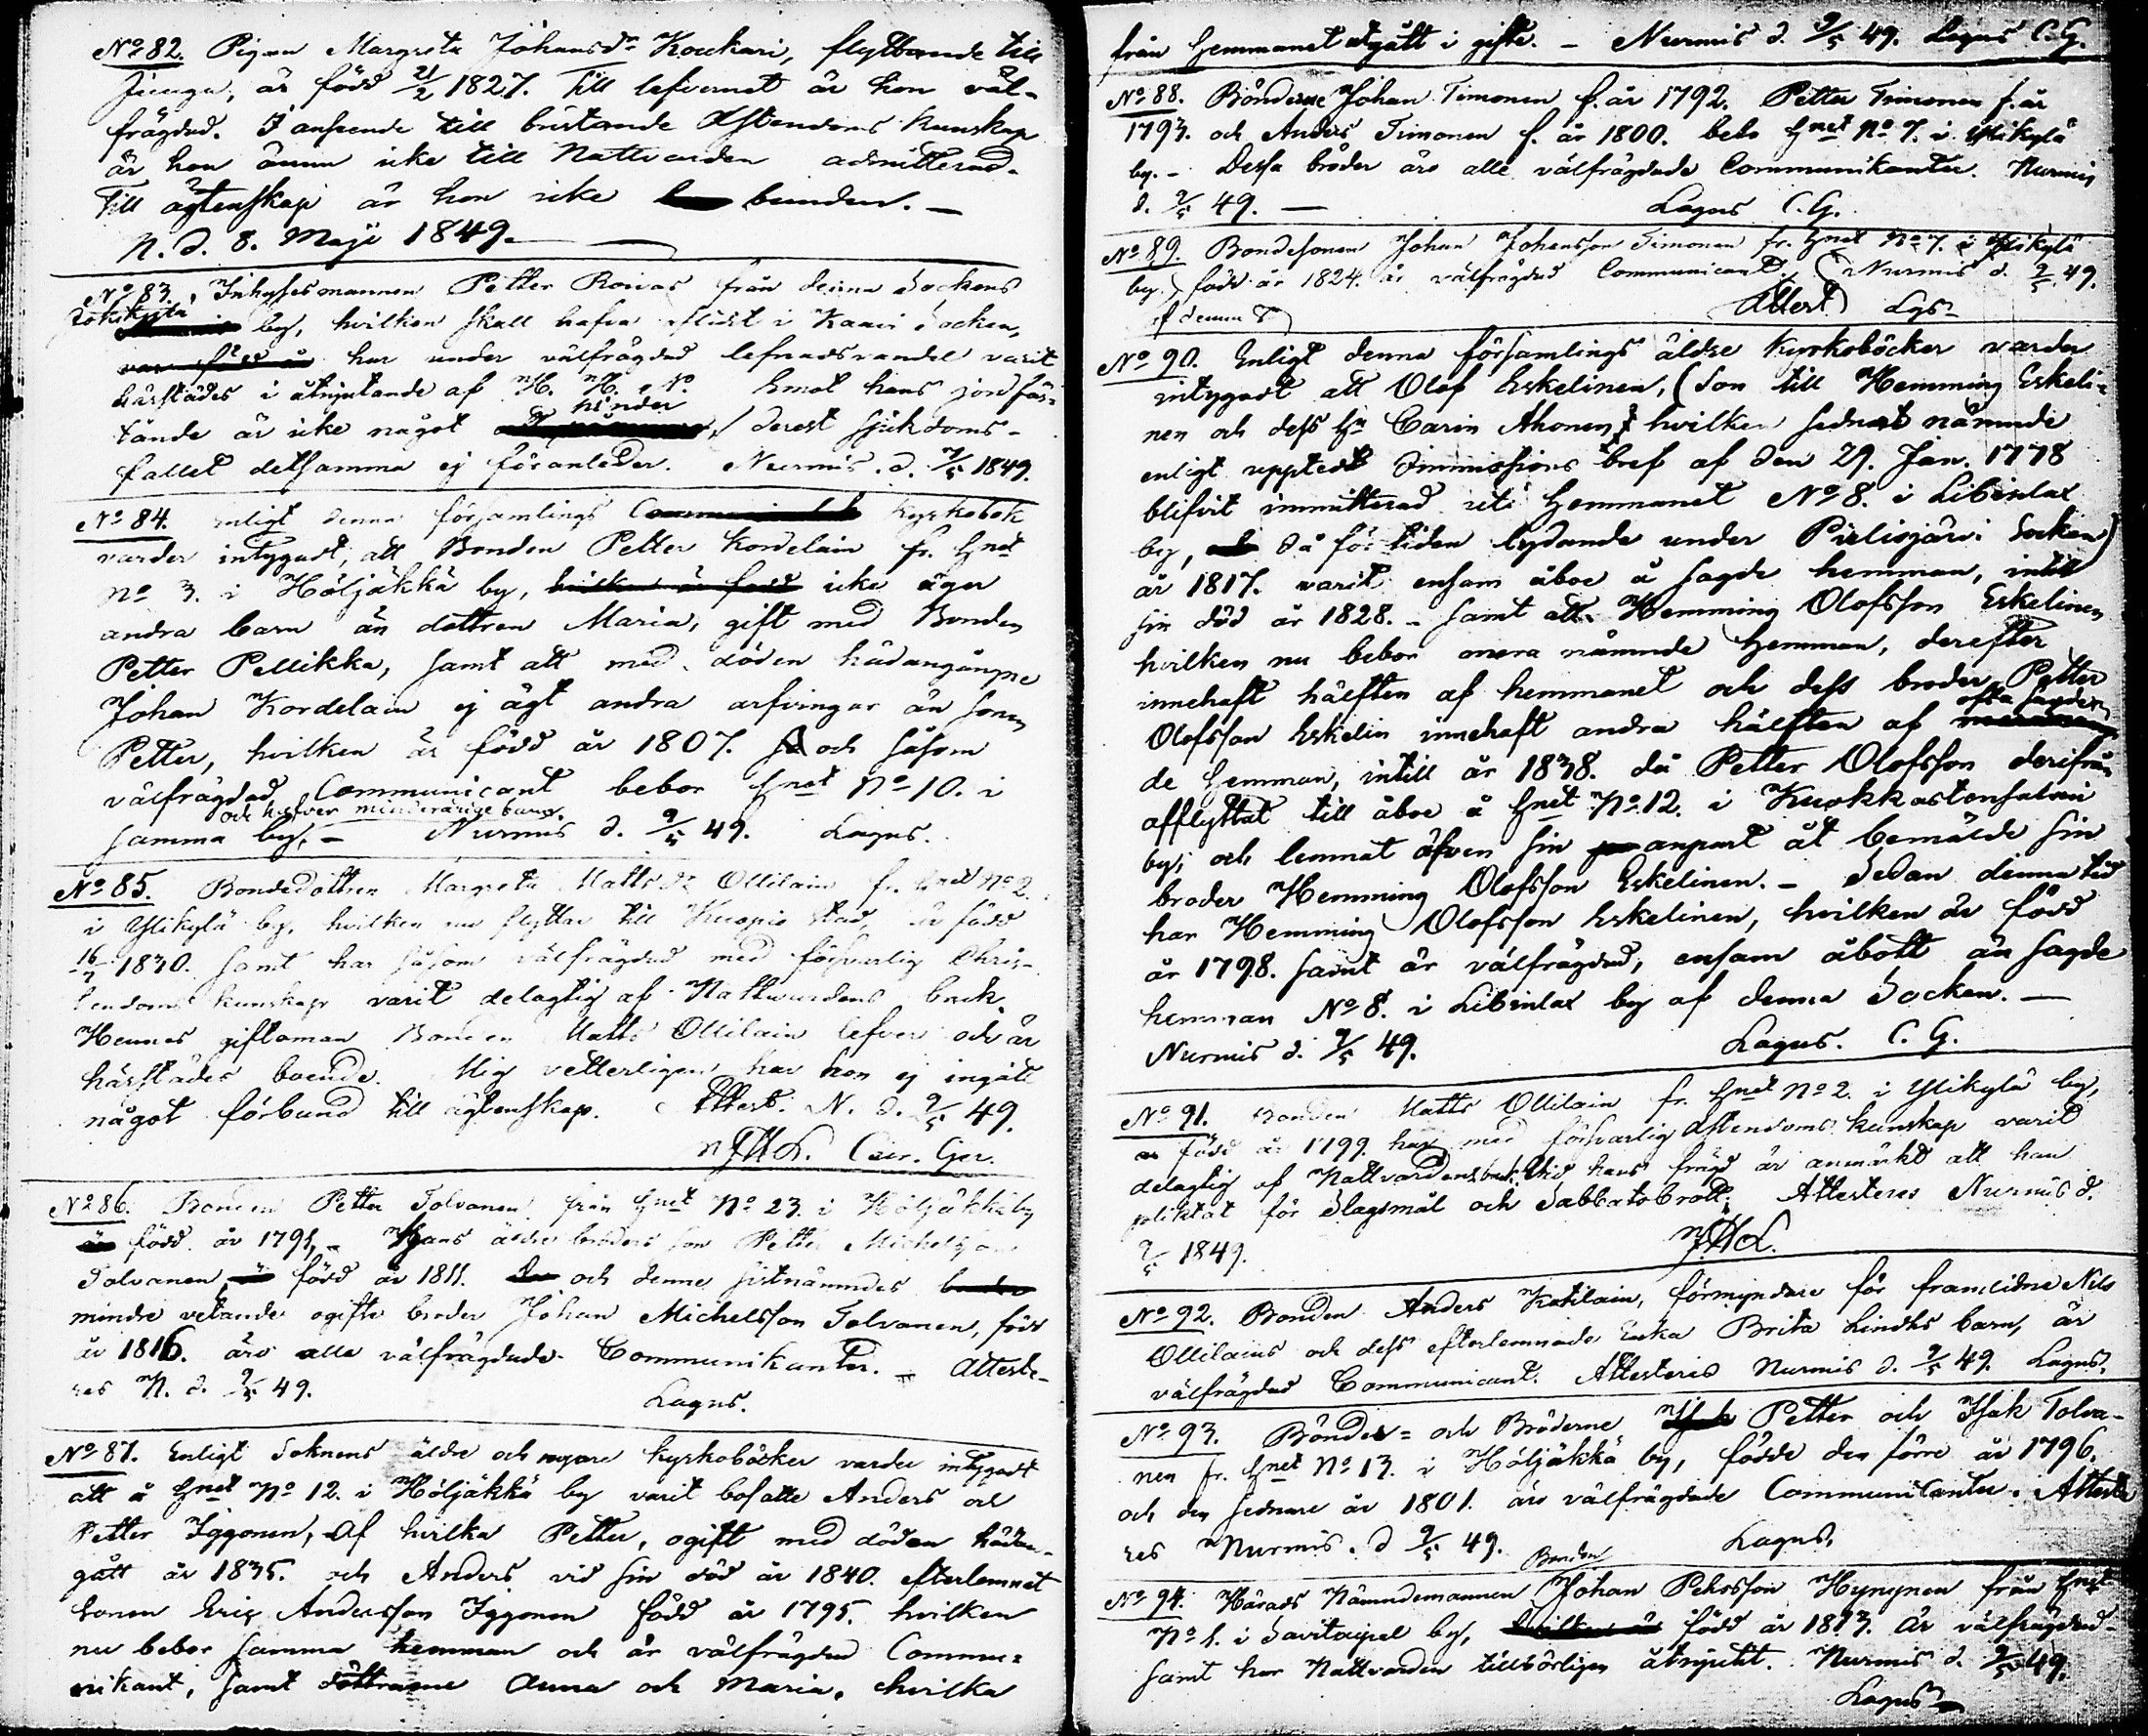 No 82. Pigan Margreta Johansdr Koukari, flyttande till
Juuga, är född 21/2 1827. Till lefvernet är hon väl-
frägdad. I anseende till bristande Christendoms kunskap
är hon ännu icke till Nattvarden admitterad.
Till ägtenskap är hon icke bunden. —
N. d. 8. Maji 1849.
No 83. Inhysesmannen Petter Roivas från denna Sockens
by, hvilken skall hafva aflidit i Kaavi Socken,
har under välfrägdad lefnadsvandel varit
härstädes i åtnjutande af H. H. N. Emot hans jordfäs-
hinder
tande är icke något derest sjukdoms-
fallet detsamma ej föranleder. Nurmis. d. 9/5 1849.
No 84. Enligt denna församlings Kyrkobok
varder intygadt, att Bonden Petter Kordelain fr. Hnet
No 3. i Höljäkkä by, icke äger
andra barn än dottren Maria, gift med Bonden
Petter Pellikka, samt att med döden hädangångne
Johan Kordelain ej ägt andra arfvingar än sonen
Petter, hvilken är född år 1807. och såsom
välfrägdad Communicant bebor Hnet No 10. i
och hafver minderårige barn.
samma by. — Nurmis d. 9/5 49. Lagus.
No 85. Bondedottren Margreta Mattsdr Ollilain fr. Hnet No 2.
i Ylikylä by, hvilken nu flyttar till Kuopio stad, är född
16/7 1830. samt har såsom välfrägdad med försvarlig Chris-
tendoms kunskap varit delagtig af Nattvardens bruk.
Hennes giftoman Bonden Matts Ollilain lefver och är
härstädes boende. Mig vetterligen har hon ej ingått
något förbund till ägtenskap. Attest. N. d. 9/5 49.
Cur. Ger.
No 86. Bonden Petter Tolvanen från Hnet No 23. i Höljäkkä by
född år 1791, — Hans äldre broders son Petter Michelsson
Tolvanen, född år 1811. och denne sistnämndes
mindre vetande ogifte broder Johan Michelsson Tolvanen, född
år 1816. äro alla välfrägdade Communikanter. — Atteste-
res N. d. 9/5 49. Lagus.
No 87. Enligt Soknens äldre och nyare kyrkoböcker varder intygadt
att å Hnet No 12. i Höljäkkä by varit bosatte Anders och
Petter Iggonen, Af hvilka Petter, ogift med döden hädan-
gått år 1835. och Anders vid sin död år 1840. efterlemnat
Sonen Eric Andersson Iggonen född år 1795. hvilken
nu bebor samma hemman och är välfrägdad Commu-
nikant, samt döttrarne Anna och Maria, hvilka
från Hemmanet utgått i gifte. — Nurmis d. 9/5 49. Lagus C. G.
No 88. Bönderne Johan Timonen f. år 1792. Petter Timonen f. år
1793. och Anders Timonen f. år 1800. bebo Hnet No 7. i Ylikylä
by. — Dessa bröder äro alle välfrägdade Communikanter. Nurmis
d. 9/5 49. — Lagus C. G.
No 89. Bondesonen Johan Johansson Timonen fr. Hnet No 7. i Ylikylä
by. född år 1824. är välfrägdad Communicant. Nurmis d. 9/5 49.
af denna S. Attest. Lgs.
No 90. Enligt denna församlings äldre Kyrkoböcker varder
intygadt att Olof Eskelinen, (Son till Hemming Eskeli-
nen och dess Hu Carin Ahonen, hvilken sednast nämnde
enligt uppteedt Dimissions bref af den 29. Jan. 1778
blifvit inmitterad uti Hemmanet No 8. i Libinlax
by, då för tiden lydande under Pielisjärvi Socken)
år 1817. varit ensam åboe å sagde hemman, intill
sin död år 1828. — samt att Hemming Olofsson Eskelinen
hvilken nu bebor omnämnde Hemman, derefter
innehaft hälften af hemmanet och dess broder Petter
ofta sagde
Olofsson Eskelin innehaft andra hälften af
de Hemman, intill år 1838. då Petter Olofsson derifrån
afflyttat till åboe å Hnet No 12. i Kuokkastensalmi
by; och lemnat äfven sin anpart åt bemälde sin
broder Hemming Olofsson Eskelinen. — Sedan denna tid
har Hemming Olofsson Eskelinen, hvilken är född
år 1798. samt är välfrägdad, ensam åbott än sagde
hemman No 8. i Libinlax by af denna Socken. —
Nurmis d. 9/5 49. Lagus. C. G.
No 91. Bonden Matts Ollilain fr. Hnet No 2. i Ylikylä by,
född år 1799. har med försvarlig Christendoms kunskap varit
delagtig af Nattvardens bruk. Vid hans frägd är anmärkt att han
pliktat för Slagsmål och Sabbatsbrott; Attesteres Nurmis d.
9/5 1849.
No 92. Bonden Anders Katilain, förmyndare för framlidne Nils
Ollilains och dess efterlemnade Enka Brita Lindhs barn, är
välfrägdad Communicant. Attesteres Nurmis d. 9/5 49. Lagus.
No 93. Bönder- och Bröderne, Petter och Isak Tolva-
nen fr. Hnet No 13. i Höljäkkä by, födde den förre år 1796.
och den sednare år 1801. äro välfrägdade Communicanter. Atteste
res Nurmis. d 9/5 49. Lagus.
Bonden
No 94. Härads Nämndemannen Johan Pekosson Hynynen från Hnet
No 1. i Savitaipal by, född år 1813. Är välfrägdad
samt har Nattvarden tillbörligen åtnjutit. Nurmis d. 9/5 49.
Lagus